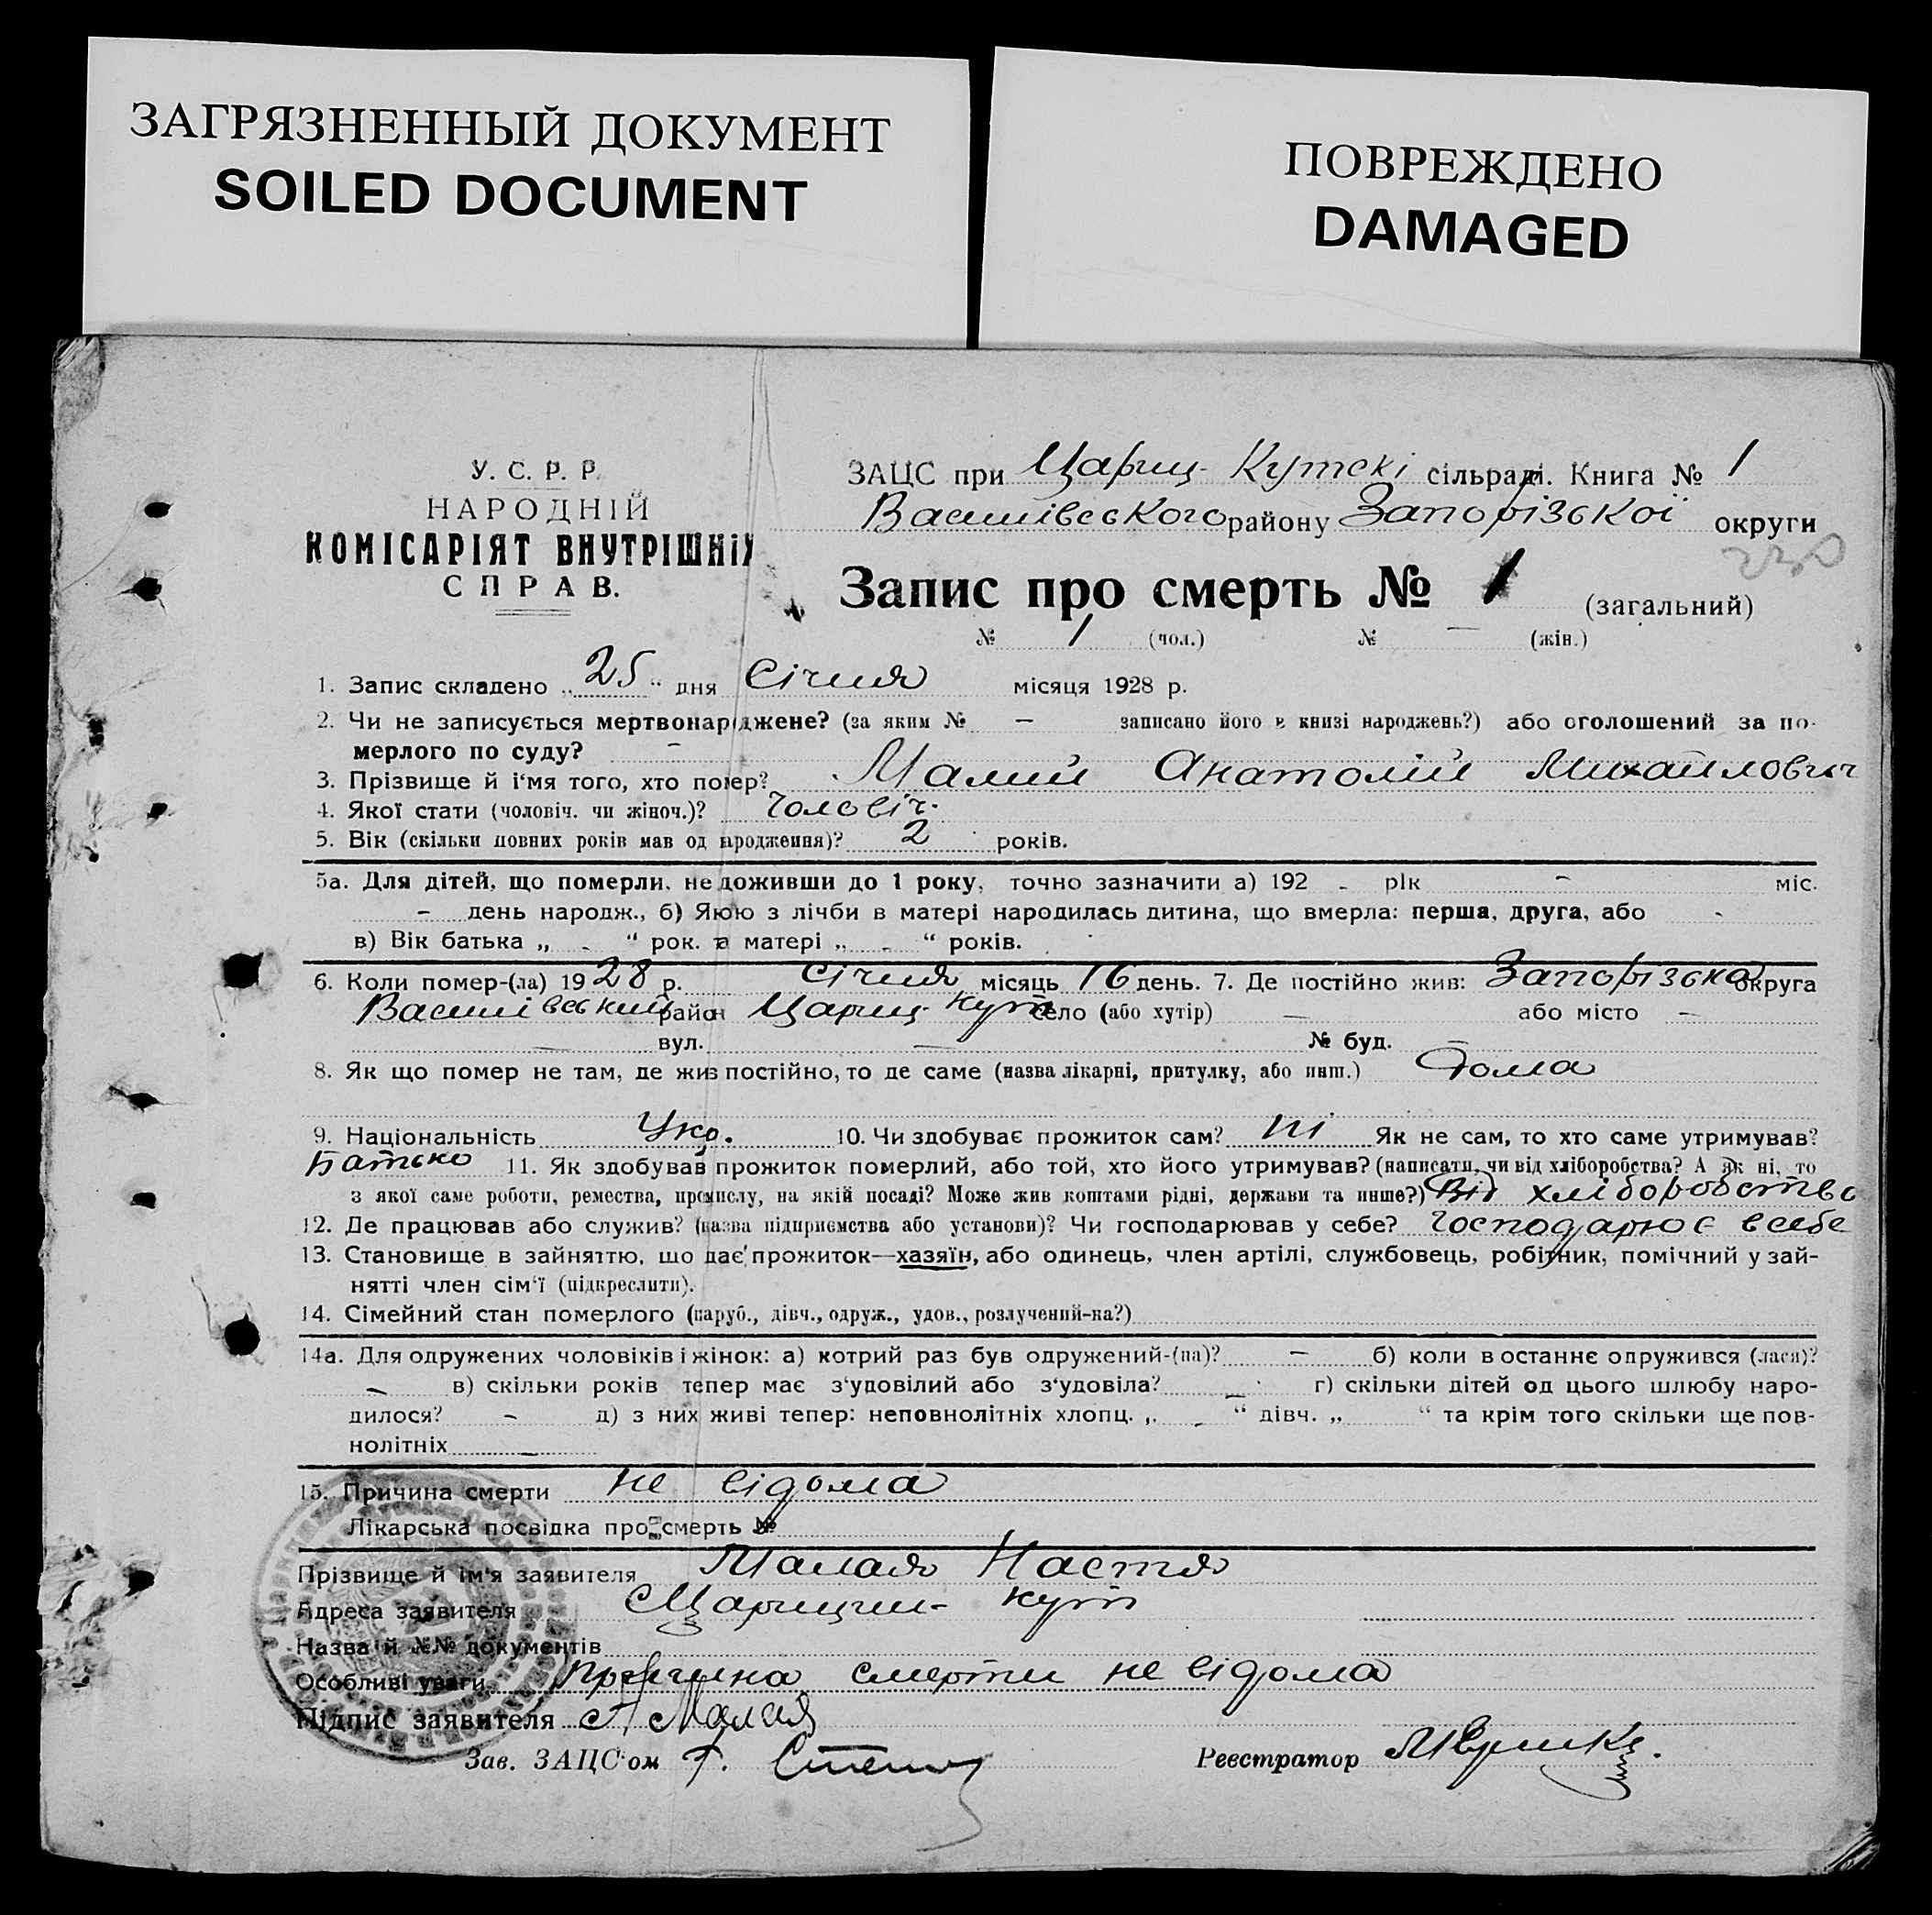 ЗАГРЯЗНЕННЫЙ ДОКУМЕНТ
SOILED DOCUMENT
ПОВРЕЖДЕНО
DAMAGED
У. С. Р. Р.
НАРОДНІЙ
КОМІСАРІЯТ ВНУТРІШНІХ
СПРАВ.
ЗАЦС при Цариц-Кутскі сільраді. Книга № 1
Василівського району Запорізької округи
230
Запис про смерть № 1 (загальний)
№ 1 (чол.) № — (жін.)
1. Запис складено „ 25 “ дня Січня місяця 1928 р.
2. Чи не записується мертвонароджене? (за яким № — записано його в книзі народжень?) або оголошений за по-
мерлого по суду? —
3. Прізвище й і‘мя того, хто помер? Малий Анатолій Михайлович
4. Якої стати (чоловіч. чи жіноч.)? Чоловіч.
5. Вік (скільки повних років мав од народження)? 2 років.
5а. Для дітей, що померли, не доживши до 1 року, точно зазначити а) 192 - рік — міс.
— день народж., б) Якою з лічби в матері народилась дитина, що вмерла: перша, друга, або -
в) Вік батька „ - “ рок. та матері „ - “ років.
6. Коли помер-(ла) 1928 р. Січня місяць 16 день. 7. Де постійно жив: Запорізька округа
Василівський район Цариц-Кут село (або хутір) — або місто —
— вул. — № буд. —
8. Як що помер не там, де жив постійно, то де саме (назва лікарні, притулку, або инш.) Дома
9. Національність Укр. 10. Чи здобуває прожиток сам? ні Як не сам, то хто саме утримував?
Батько 11. Як здобував прожиток померлий, або той, хто його утримував? (написати, чи від хліборобства? А як ні, то
з якої саме роботи, ремества, промислу, на якій посаді? Може жив коштами рідні, держави та инше?) Від хліборобства
12. Де працював або служив? (назва підприємства або установи)? Чи господарював у себе? Господарює в себе
13. Становище в зайняттю, що дає прожиток—хазяїн, або одинець, член артілі, службовець, робітник, помічний у зай-
нятті член сім‘ї (підкреслити).
14. Сімейний стан померлого (паруб., дівч., одруж., удов., розлучений-на?)
14а. Для одружених чоловіків і жінок: а) котрий раз був одружений-(на)? — б) коли в останнє одружився (лася)?
— в) скільки років тепер має з‘удовілий або з‘удовіла? — г) скільки дітей од цього шлюбу наро-
дилося? — д) з них живі тепер: неповнолітніх хлопц. „ - “ дівч. „ “ та крім того скільки ще пов-
нолітніх —
15. Причина смерти не відома
Лікарська посвідка про смерть №
Прізвище й ім‘я заявителя Малая Настя
Адреса заявителя Царицин-Кут
Назва й №№ документів
Особливі уваги Причина смерти не відома
Підпис заявителя Малая
Зав. ЗАЦС‘ом Реєстратор